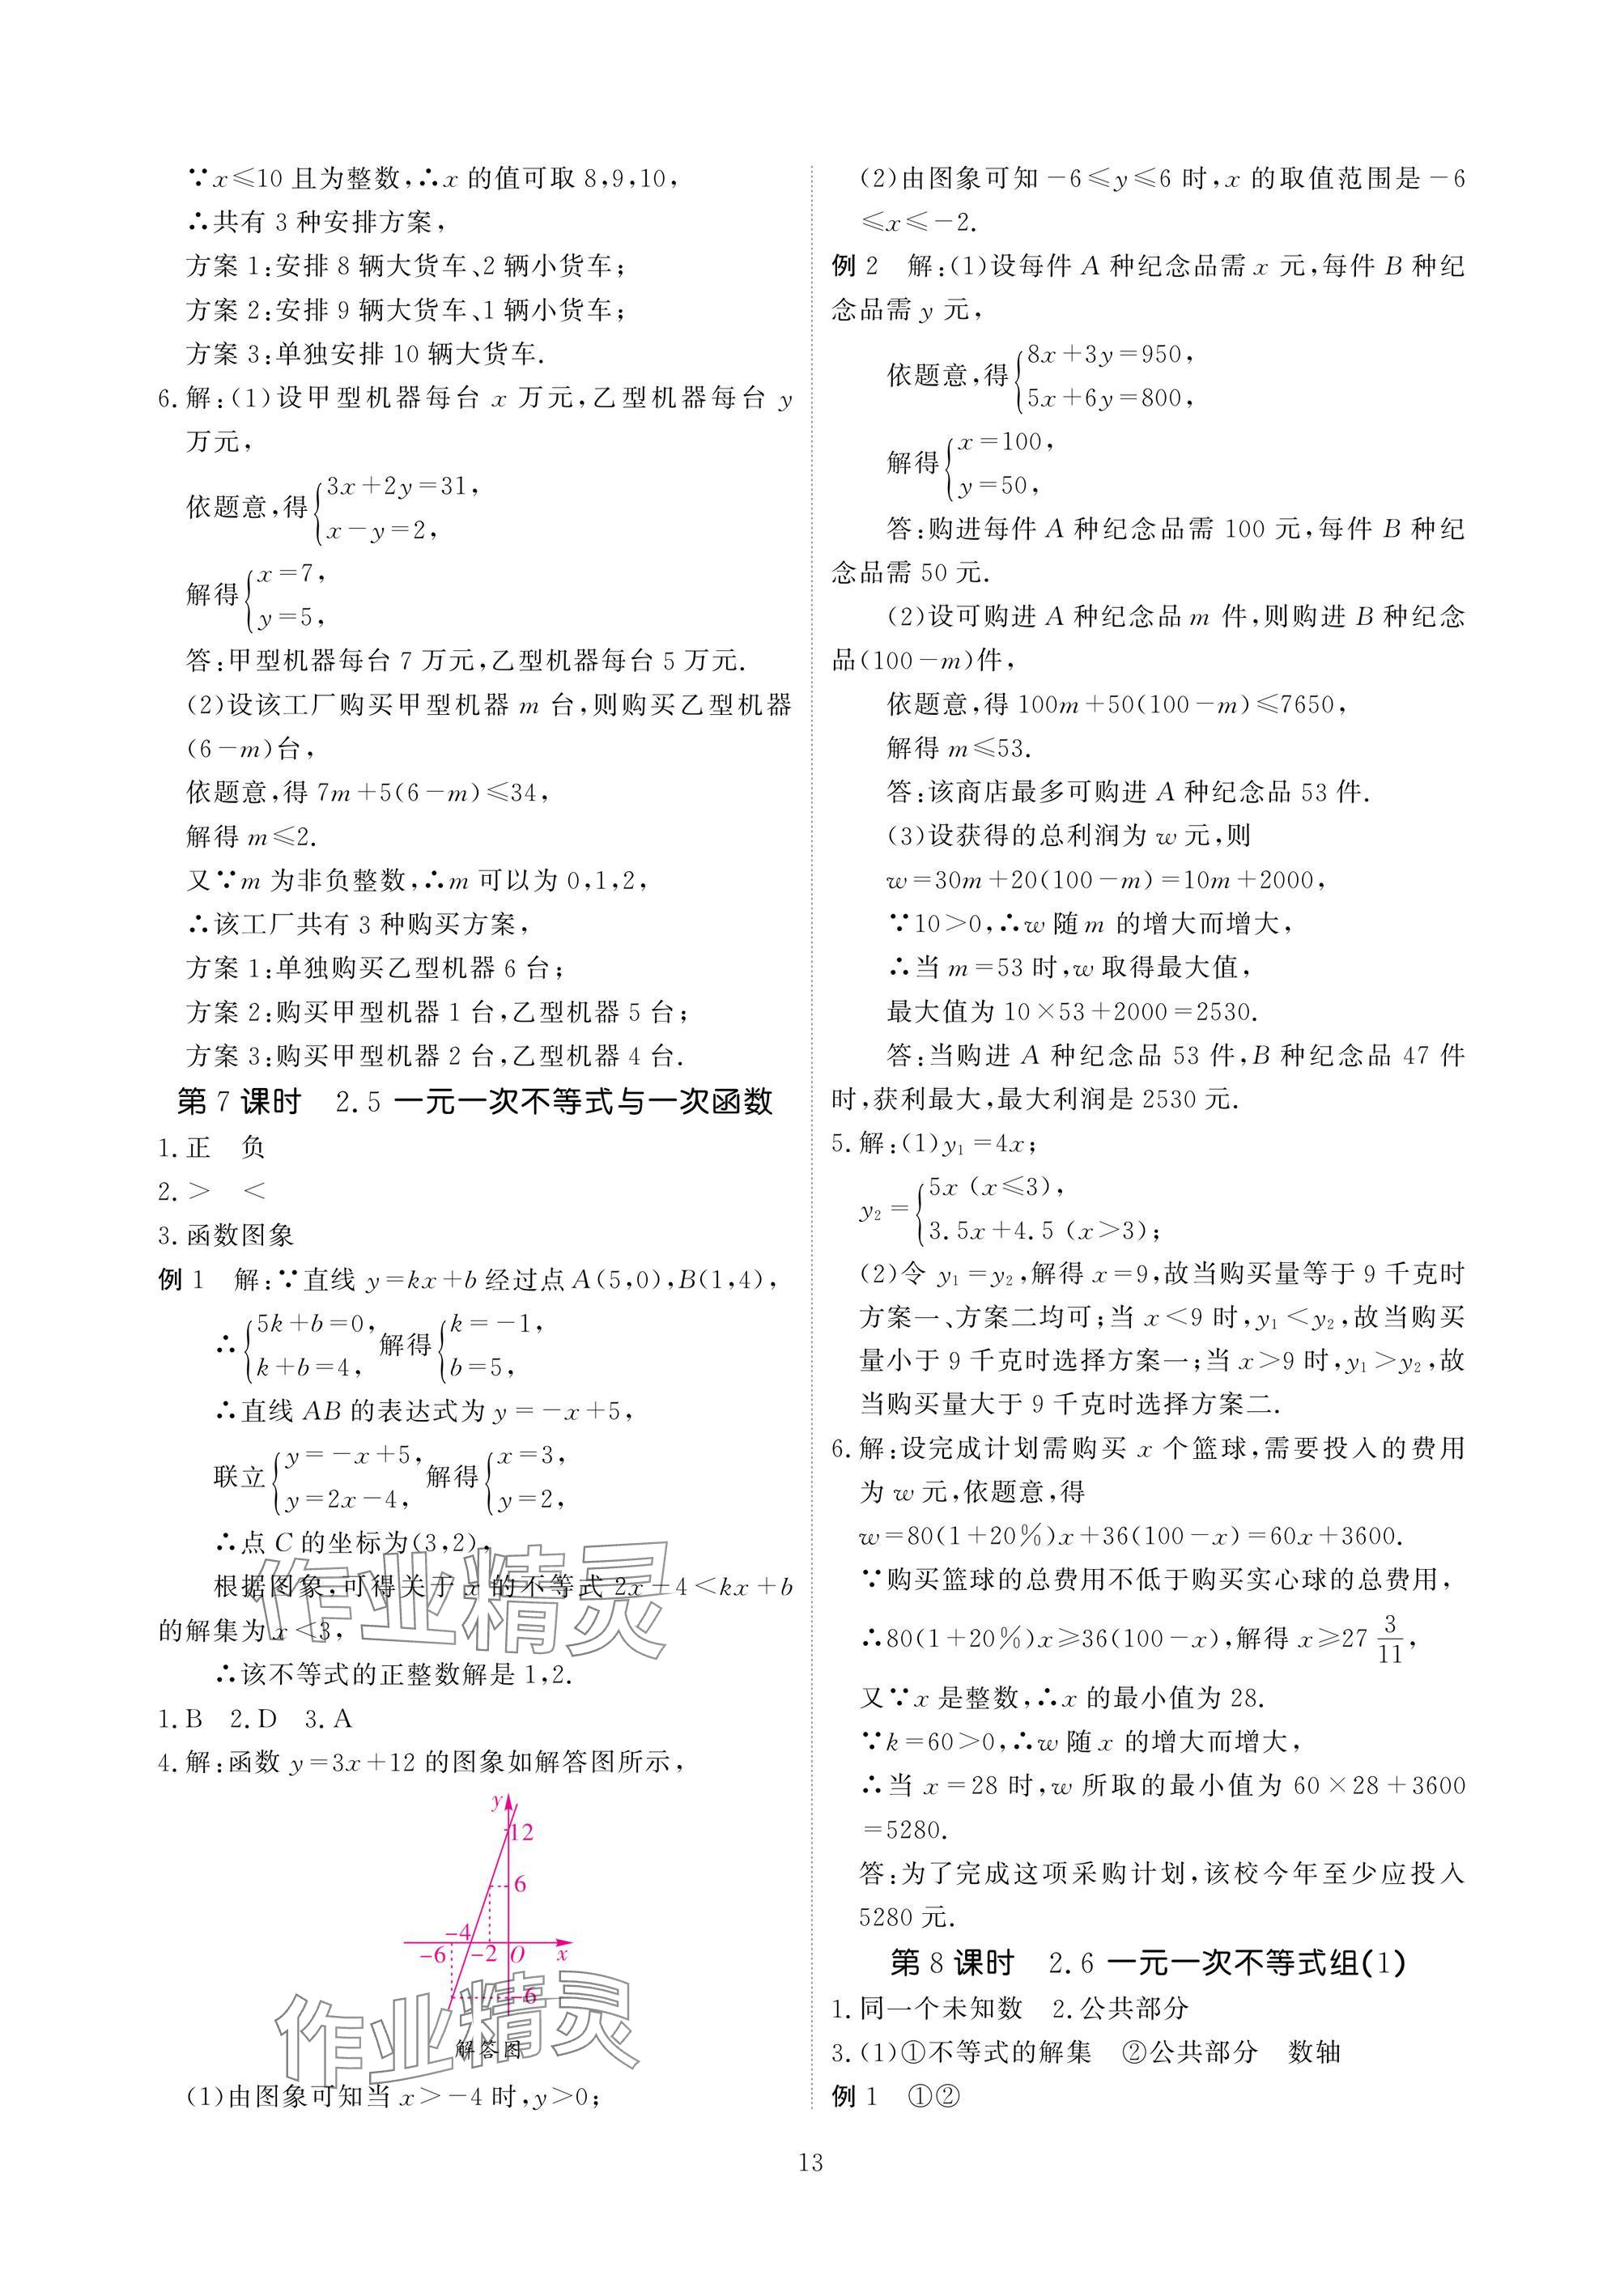 ∵x≤10 且为整数,∴x 的值可取 8,9,10,
∴共有 3 种安排方案,
方案 1:安排 8 辆大货车、2 辆小货车;
方案 2:安排 9 辆大货车、1 辆小货车;
方案 3:单独安排 10 辆大货车.
6.解:(1)设甲型机器每台 x 万元,乙型机器每台 y
万元,
依题意,得{3x+2y=31,
x-y=2,
解得{x=7,
y=5,
答:甲型机器每台 7 万元,乙型机器每台 5 万元.
(2)设该工厂购买甲型机器 m 台,则购买乙型机器
(6-m)台,
依题意,得 7m+5(6-m)≤34,
解得 m≤2.
又∵m 为非负整数,∴m 可以为 0,1,2,
∴该工厂共有 3 种购买方案,
方案 1:单独购买乙型机器 6 台;
方案 2:购买甲型机器 1 台,乙型机器 5 台;
方案 3:购买甲型机器 2 台,乙型机器 4 台.
第 7 课时 2.5 一元一次不等式与一次函数
1.正 负
2.> <
3.函数图象
例 1 解:∵直线 y=kx+b 经过点 A(5,0),B(1,4),
∴{5k+b=0, 解得{k=-1,
k+b=4, b=5,
∴直线 AB 的表达式为 y=-x+5,
联立{y=-x+5, 解得{x=3,
y=2x-4, y=2,
∴点 C 的坐标为(3,2),
根据图象,可得关于 x 的不等式 2x-4<kx+b
的解集为 x<3,
∴该不等式的正整数解是 1,2.
1.B 2.D 3.A
4.解:函数 y=3x+12 的图象如解答图所示,
y
12
6
-4
-6 -2 O x
-6
解答图
(1)由图象可知当 x>-4 时,y>0;
(2)由图象可知-6≤y≤6 时,x 的取值范围是-6
≤x≤-2.
例 2 解:(1)设每件 A 种纪念品需 x 元,每件 B 种纪
念品需 y 元,
依题意,得{8x+3y=950,
5x+6y=800,
解得{x=100,
y=50,
答:购进每件 A 种纪念品需 100 元,每件 B 种纪
念品需 50 元.
(2)设可购进 A 种纪念品 m 件,则购进 B 种纪念
品(100-m)件,
依题意,得 100m+50(100-m)≤7650,
解得 m≤53.
答:该商店最多可购进 A 种纪念品 53 件.
(3)设获得的总利润为 w 元,则
w=30m+20(100-m)=10m+2000,
∵10>0,∴w 随 m 的增大而增大,
∴当 m=53 时,w 取得最大值,
最大值为 10×53+2000=2530.
答:当购进 A 种纪念品 53 件,B 种纪念品 47 件
时,获利最大,最大利润是 2530 元.
5.解:(1)y₁=4x;
y₂={5x (x≤3),
3.5x+4.5 (x>3);
(2)令 y₁=y₂,解得 x=9,故当购买量等于 9 千克时
方案一、方案二均可;当 x<9 时,y₁<y₂,故当购买
量小于 9 千克时选择方案一;当 x>9 时,y₁>y₂,故
当购买量大于 9 千克时选择方案二.
6.解:设完成计划需购买 x 个篮球,需要投入的费用
为 w 元,依题意,得
w=80(1+20%)x+36(100-x)=60x+3600.
∵购买篮球的总费用不低于购买实心球的总费用,
∴80(1+20%)x≥36(100-x),解得 x≥27 3/11,
又∵x 是整数,∴x 的最小值为 28.
∵k=60>0,∴w 随 x 的增大而增大,
∴当 x=28 时,w 所取的最小值为 60×28+3600
=5280.
答:为了完成这项采购计划,该校今年至少应投入
5280 元.
第 8 课时 2.6 一元一次不等式组(1)
1.同一个未知数 2.公共部分
3.(1)①不等式的解集 ②公共部分 数轴
例 1 ①②
13
作业精灵
作业精灵